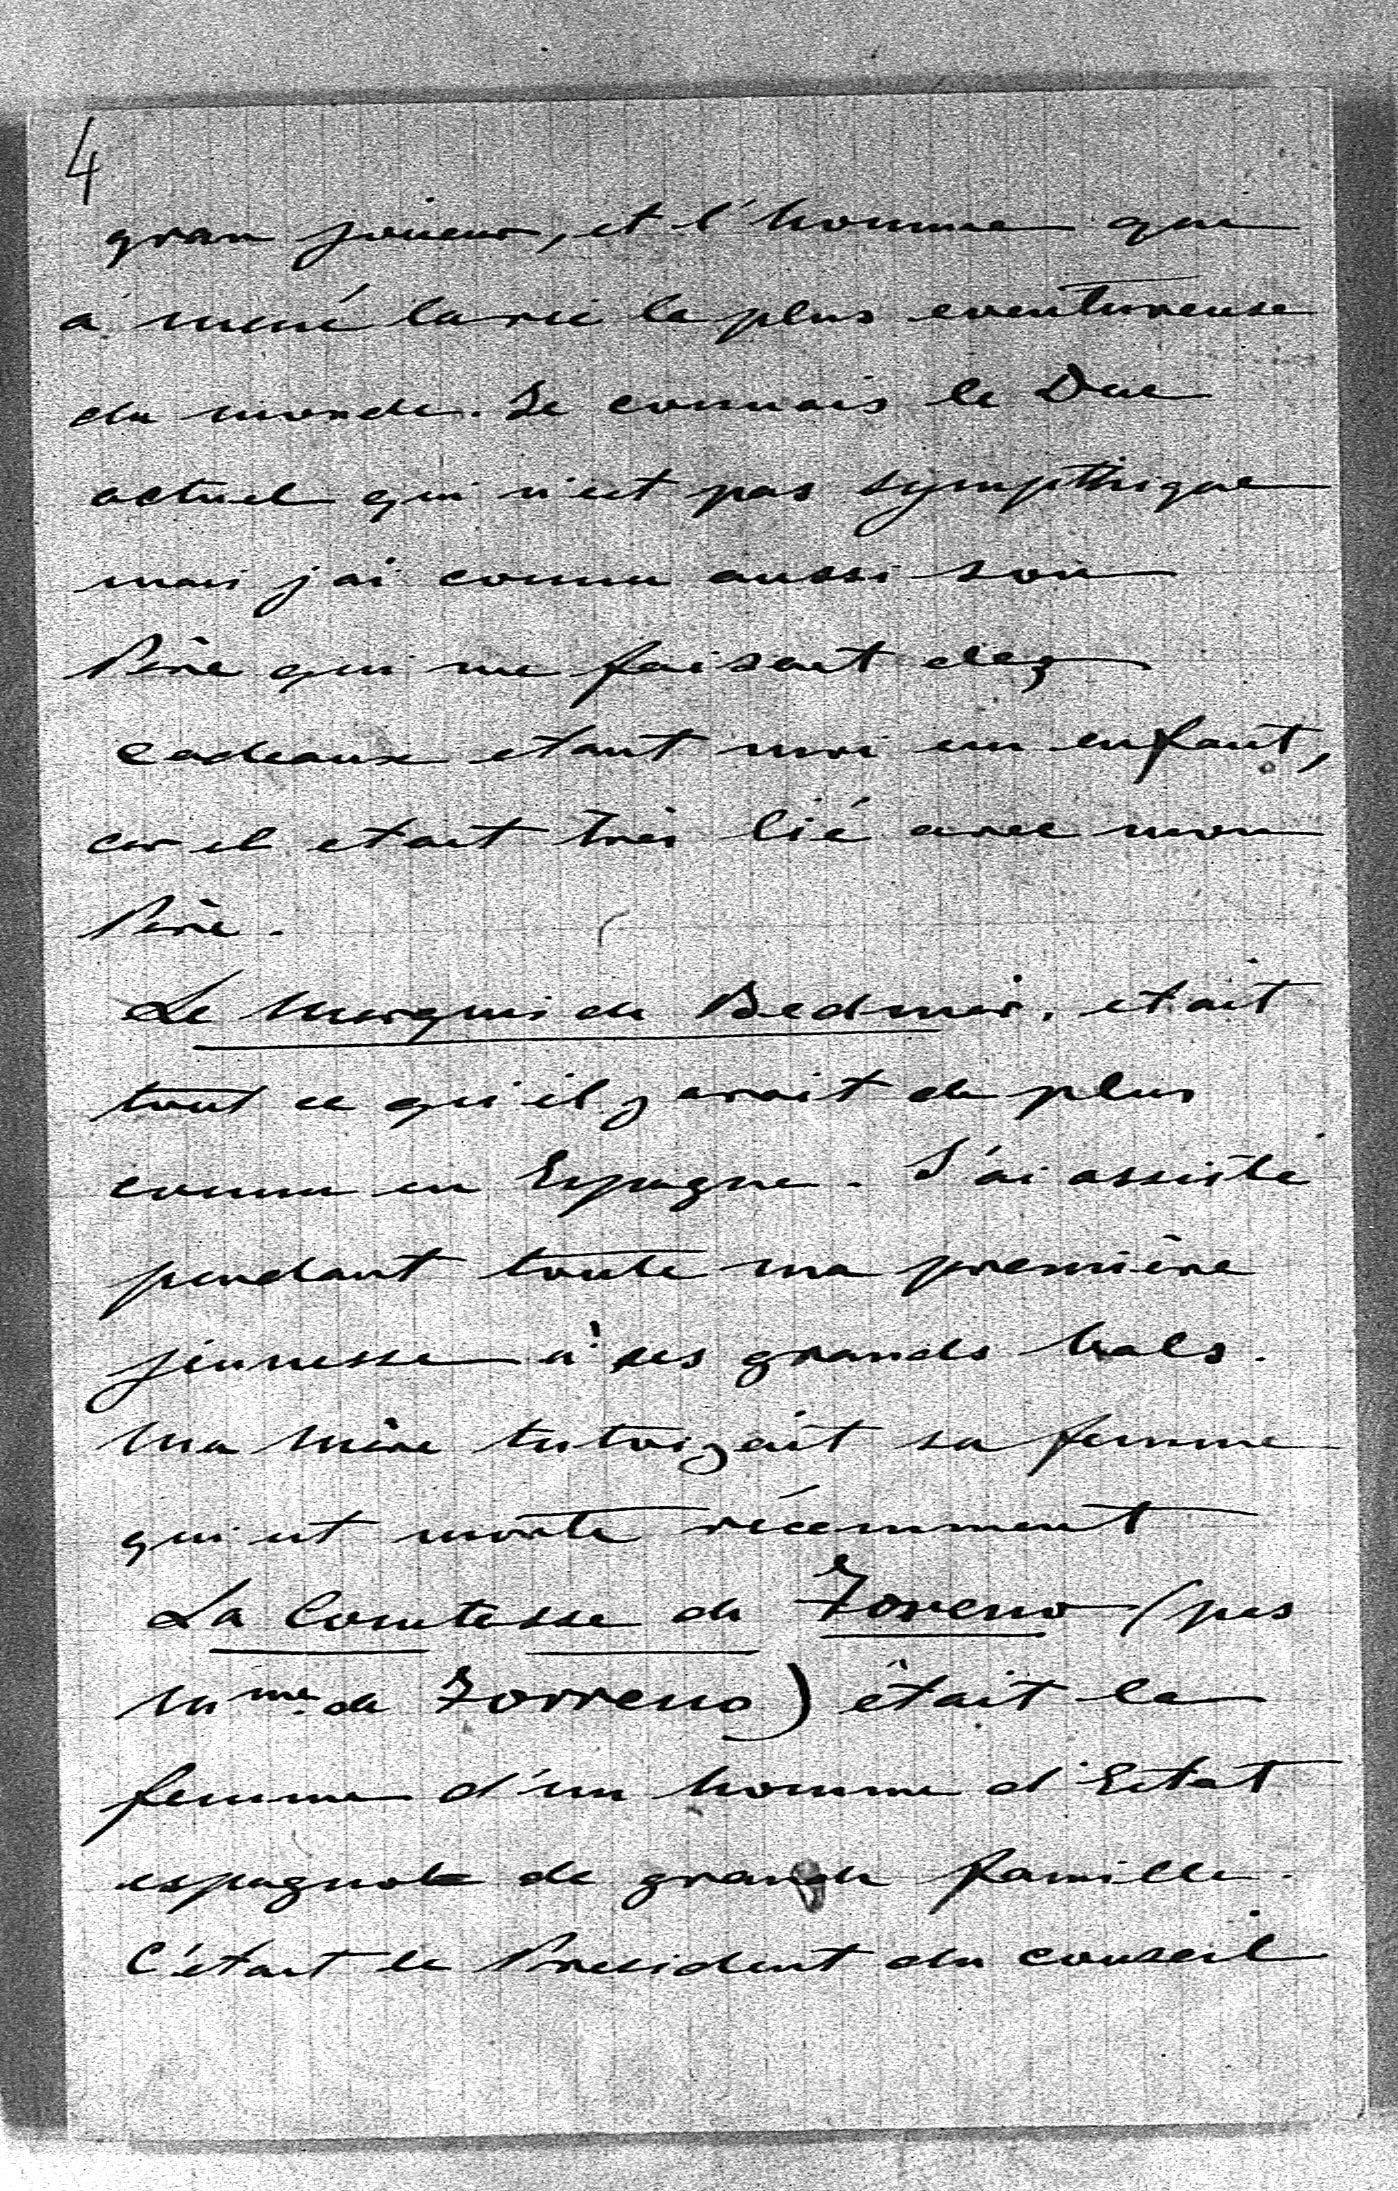 4
gran joueur, et l'homme qui
a mené la vie la plus eventureuse
du monde. Je connais le Duc
actuel qui n'est pas sympthique
mais j'ai connu aussi son
Père qui me faisait des
cadeaux etant moi un enfant,
car il etait très lié avec mon
Père.
Le Marquis de Bedmar, etait
tout ce qu'il y avait de plus
connu en Espagne. J'ai assisté
pendant toute ma première
jeunesse à ses grands bals.
Ma Mère tutoyait sa femme
qui est morte récemment
La Comtesse de Toreno (pas
Mme de Torreno) était la
femme d'un homme d'Estat
espagnol de grande famille.
C'étant le President du conseil